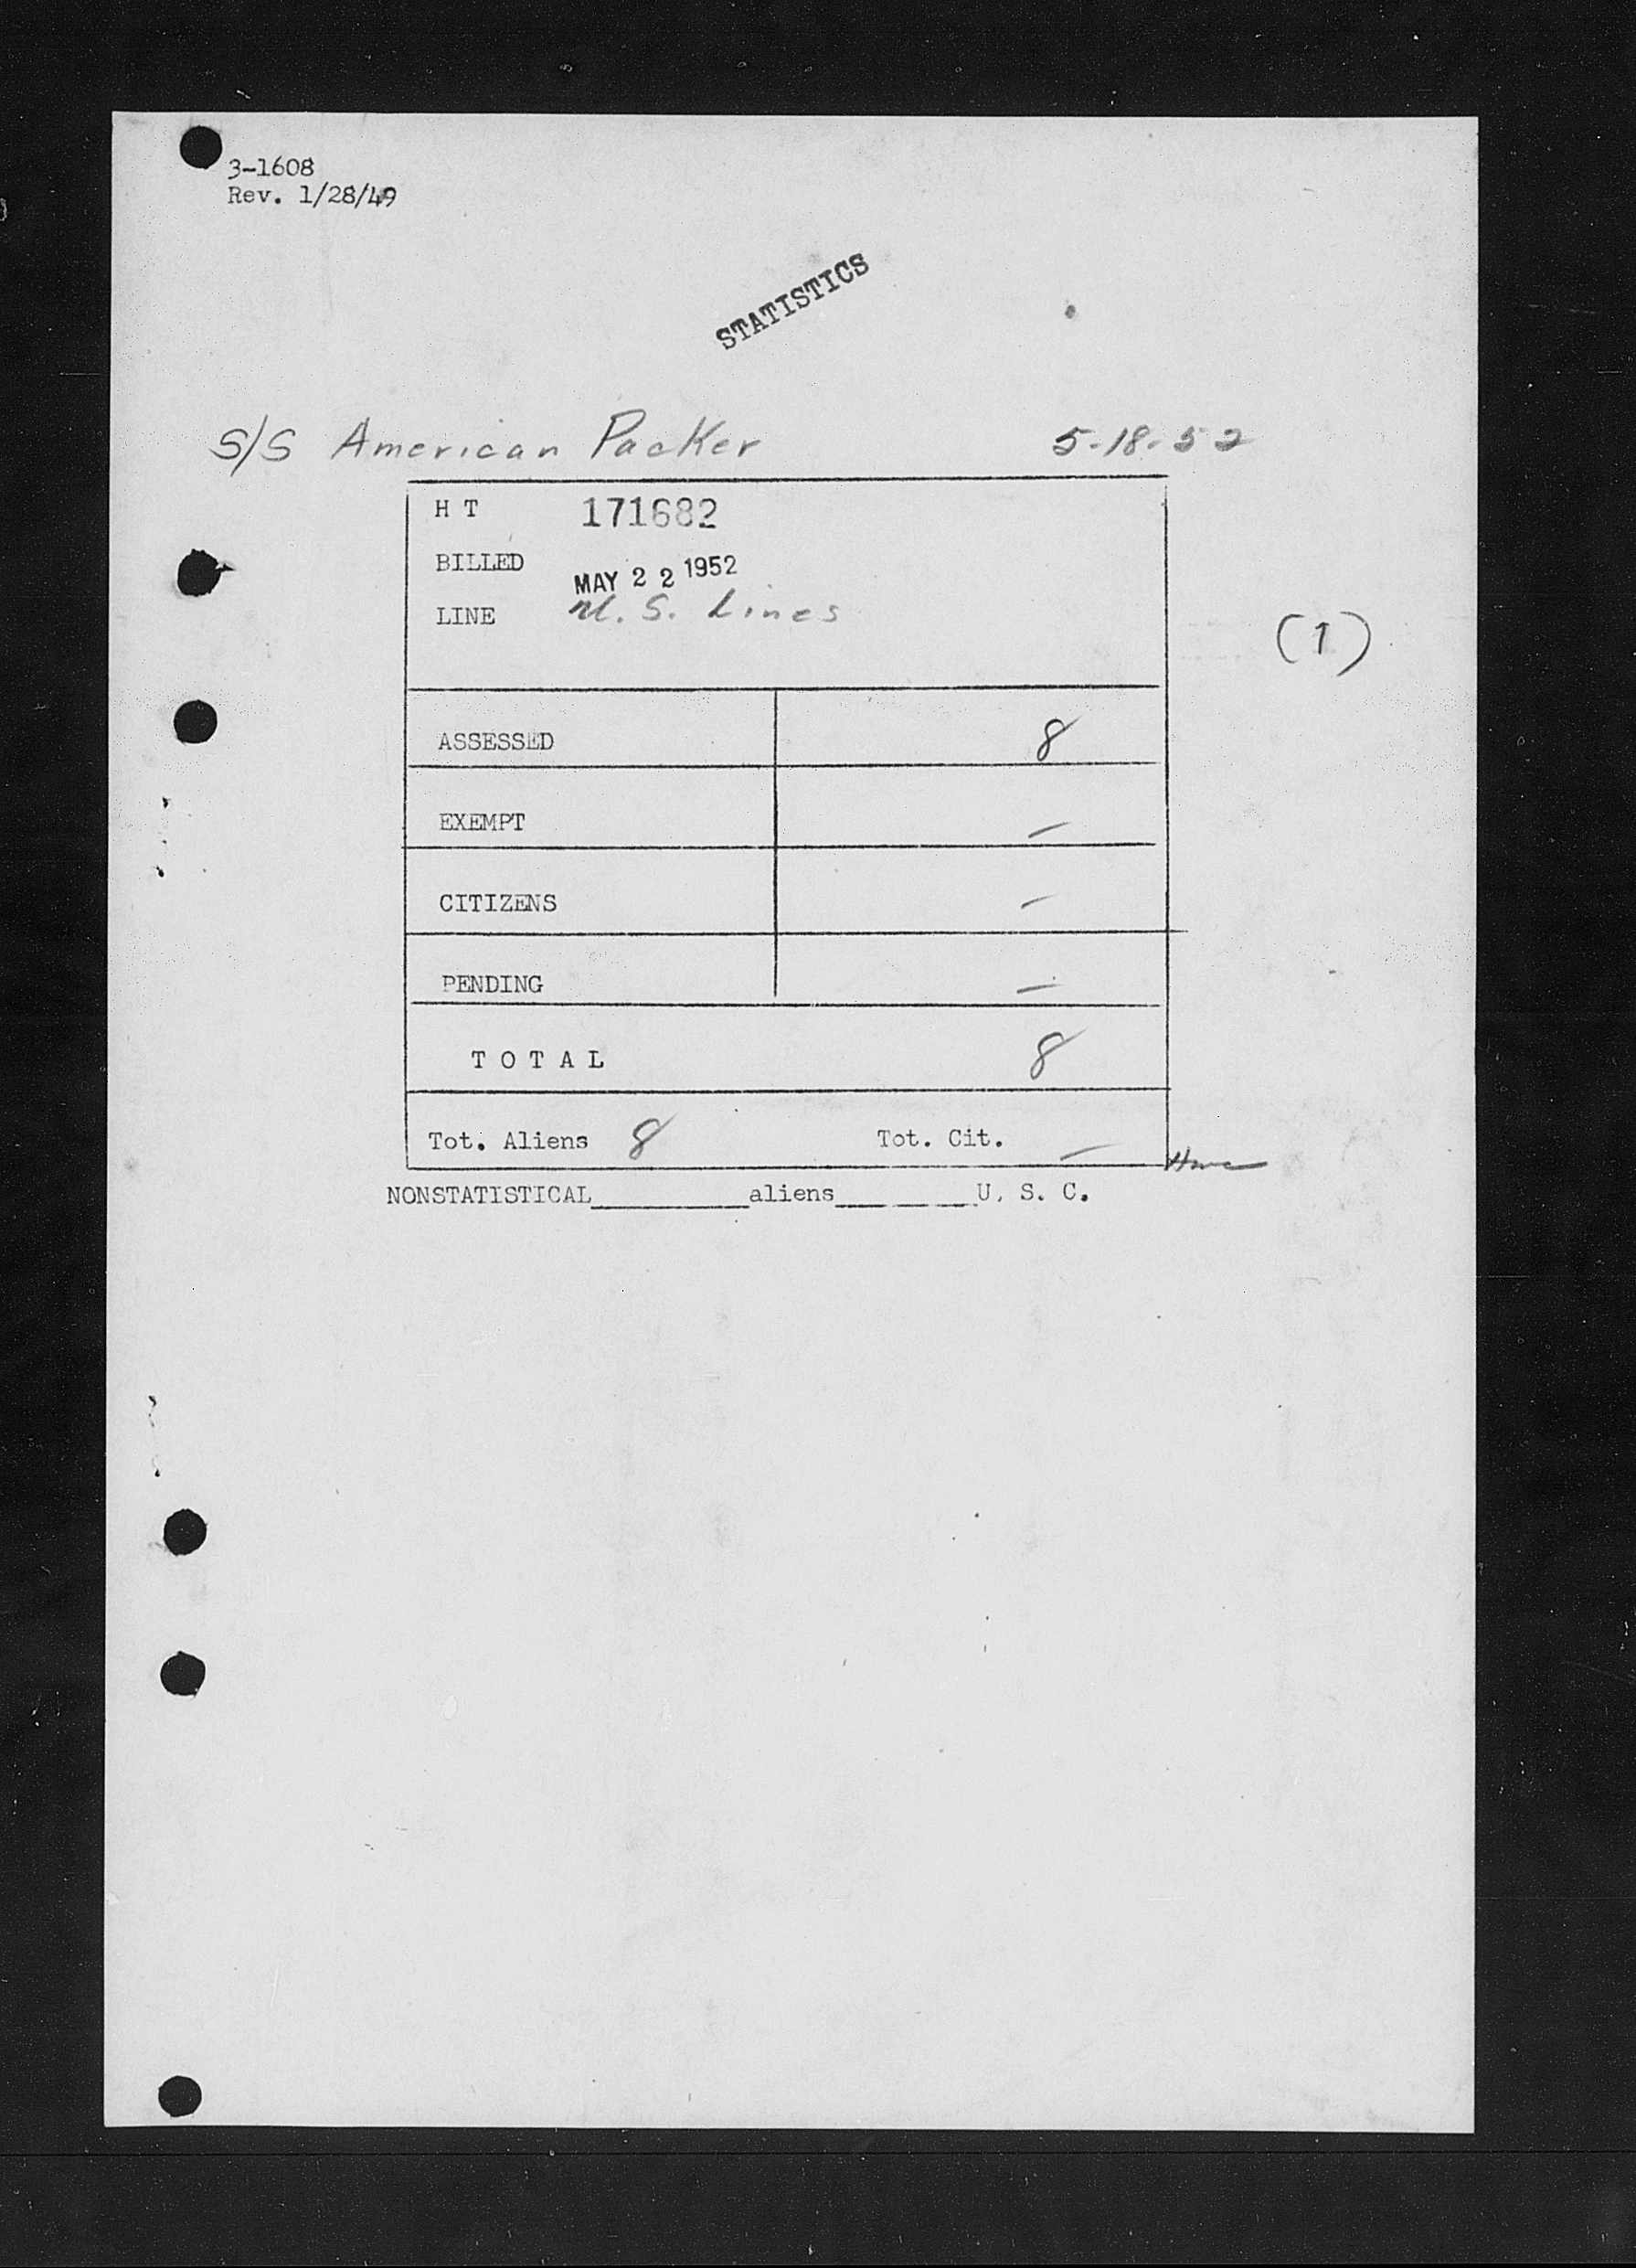 3-1608
Rev. 1/28/49
STATISTICS
S/S American Packer 5-18-52
H T 171682
BILLED MAY 22 1952
LINE U.S. Lines
(1)
ASSESSED 8
EXEMPT —
CITIZENS —
PENDING —
T O T A L 8
Tot. Aliens 8 Tot. Cit. —
NONSTATISTICAL__________aliens_________U. S. C.